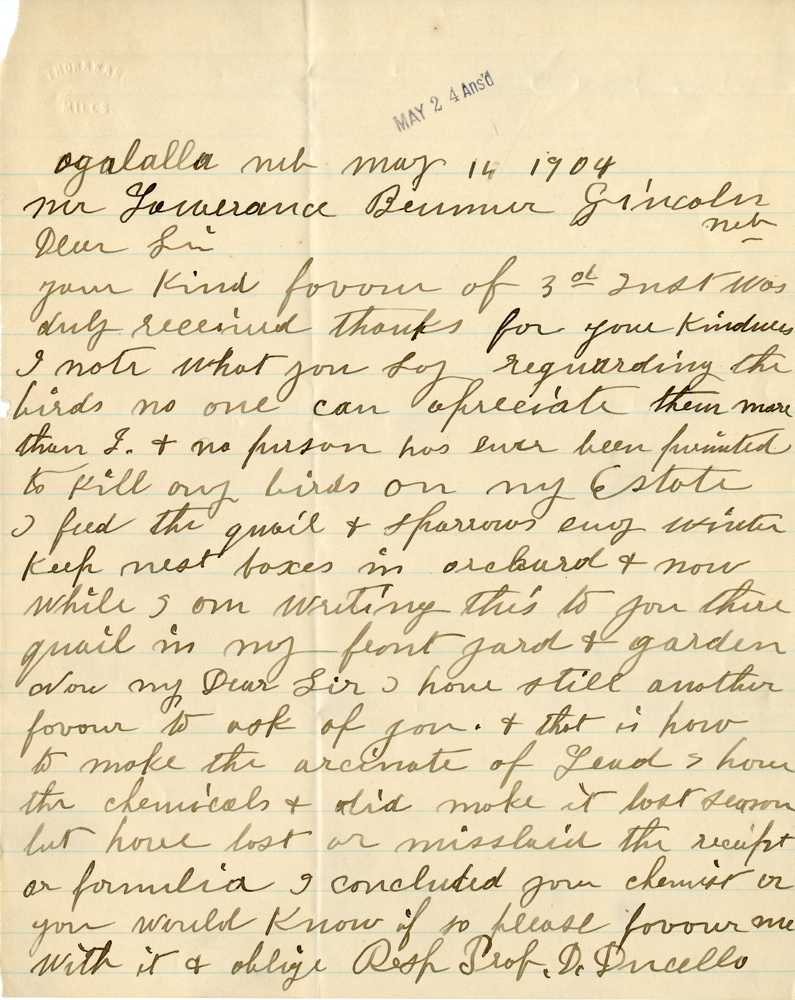 THORNWAR
MILLS
MAY 24 Ans'd
ogalalla neb may 14 1904
mr Lawerance Bennner Lincoln
neb
Dear Sir
your Kind favour of 3rd Inst was
duly received thanks for your Kindness
I note what you Say reguarding the
birds no one can apreciate them more
than I. & no person has ever been permited
to Kill any birds on my Estate
I feed the quail & Sparrows evry winter
Keep nest boxes in orchard & now
While I am Writing this to you there
quail in my front yard & garden
Now my Dear Sir I have still another
favour to ask of you. & that is how
to make the arcinate of Lead I have
the chemicals & did make it last season
but have lost or misslaid the receipt
or formulia I concluded your chemist or
you would Know if so please favour me
With it & oblige Resp Prof. D.